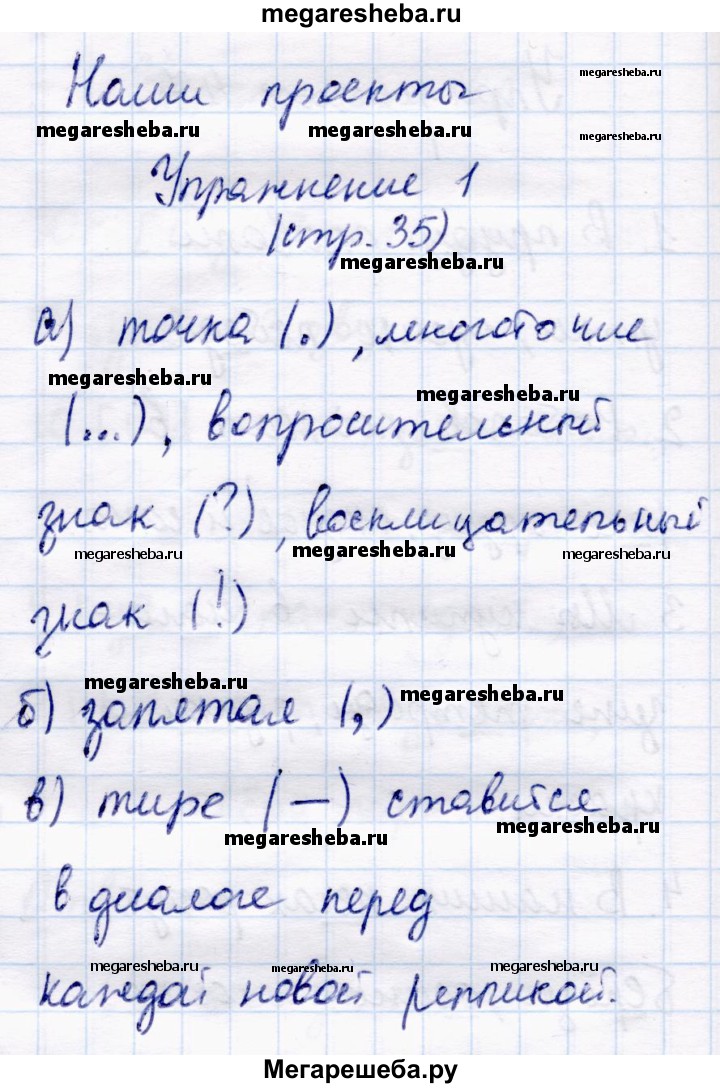 megaresheba.ru
Наши проекты
megaresheba.ru
megaresheba.ru megaresheba.ru megaresheba.ru
Упражнение 1
(стр. 35)
megaresheba.ru
а) точка (.), многоточие
megaresheba.ru megaresheba.ru
(...), вопросительный
знак (?), восклицательный
megaresheba.ru megaresheba.ru megaresheba.ru
знак (!)
megaresheba.ru megaresheba.ru
б) запятая (,)
в) тире (—) ставится
megaresheba.ru megaresheba.ru
в диалоге перед
megaresheba.ru megaresheba.ru megaresheba.ru
каждой новой репликой.
Мегарешеба.ру